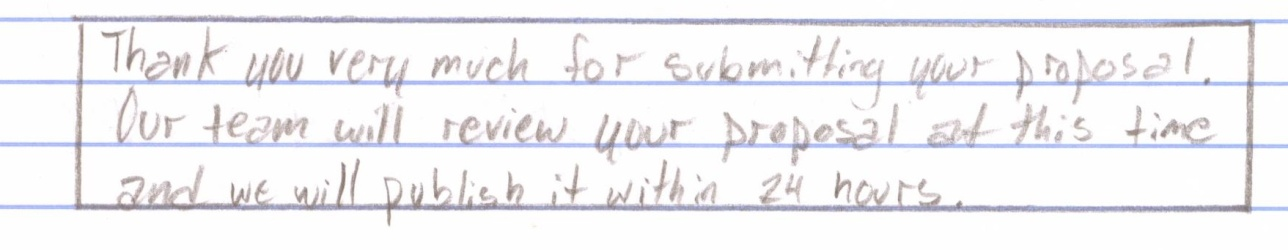 Thank you very much for submitting your proposal.
Our team will review your proposal at this time
and we will publish it within 24 hours.